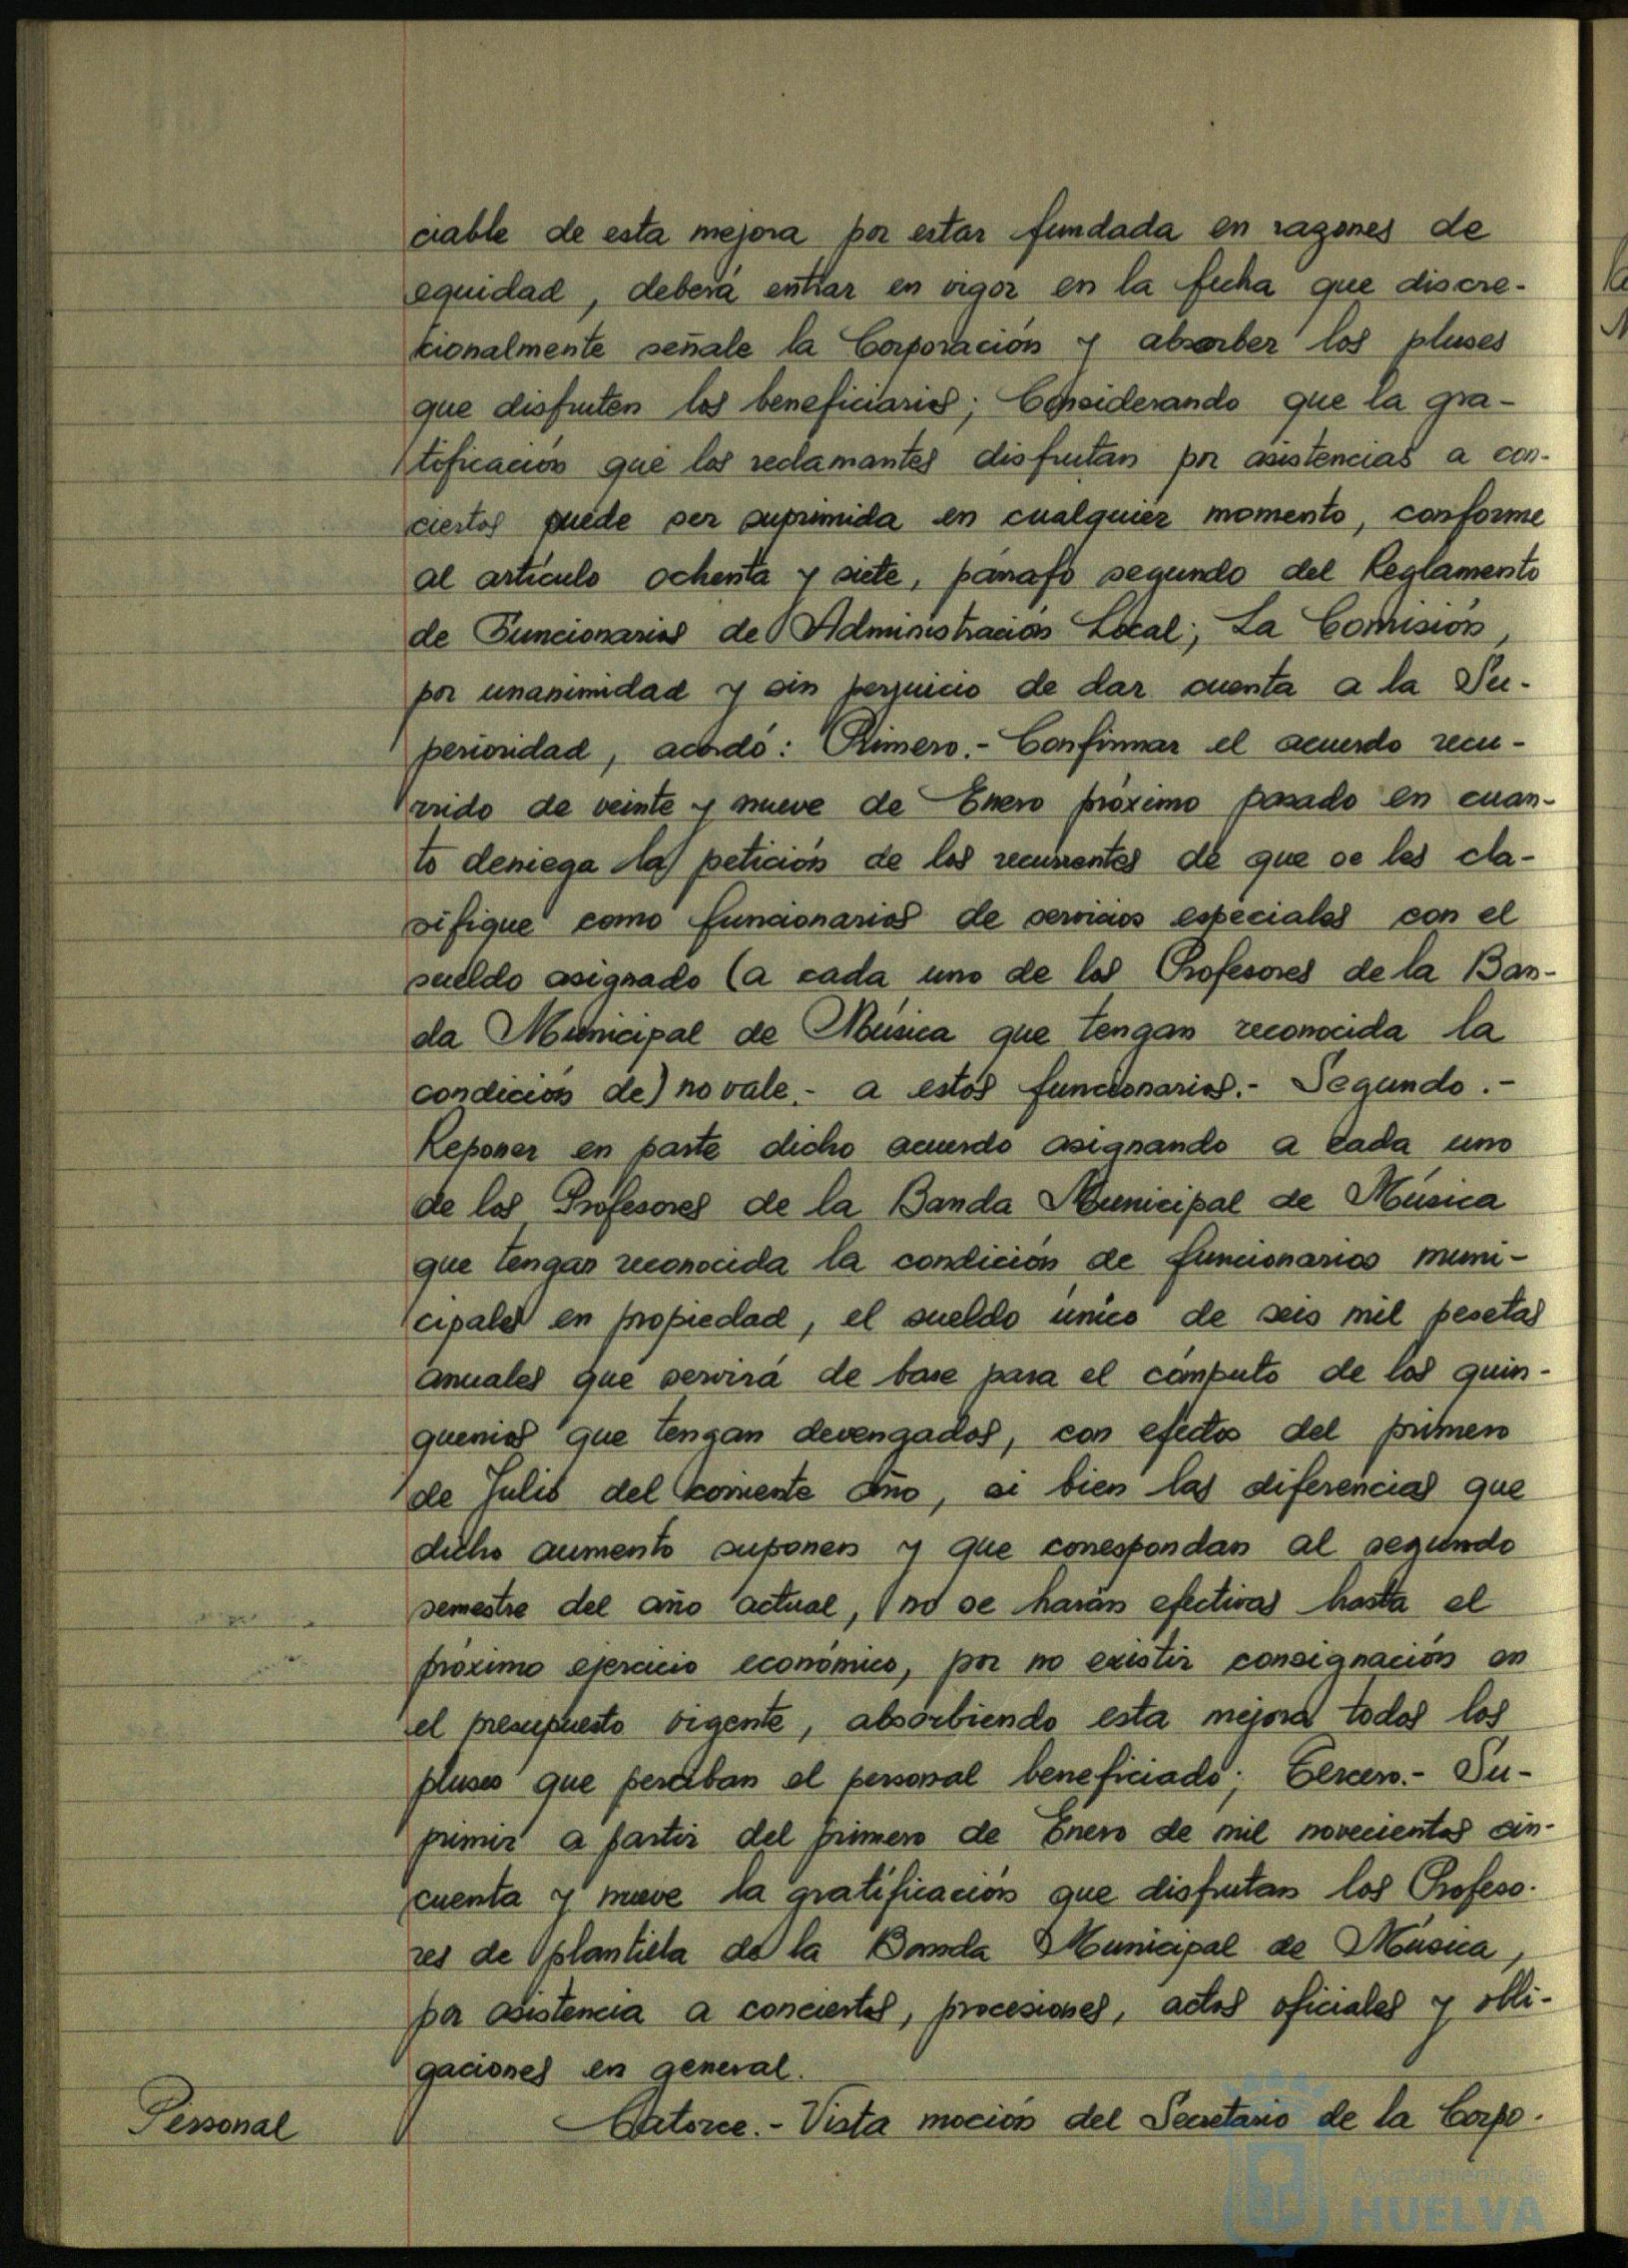 ciable de esta mejora por estar fundada en razones de
equidad, deberá entrar en vigor en la fecha que discre-
cionalmente señale la Corporación y absorber los pluses
que disfruten los beneficiarios; Considerando que la gra-
tificación que los reclamantes disfrutan por asistencias a con-
ciertos puede ser suprimida en cualquier momento, conforme
al artículo ochenta y siete, párrafo segundo del Reglamento
de Funcionarios de Administración Local; La Comisión,
por unanimidad y sin perjuicio de dar cuenta a la Su-
perioridad, acordó: Primero.- Confirmar el acuerdo recu-
rrido de veinte y nueve de Enero próximo pasado en cuan-
to deniega la petición de los recurrentes de que se les cla-
sifique como funcionarios de servicios especiales con el
sueldo asignado (a cada uno de los Profesores de la Ban-
da Municipal de Música que tengan reconocida la
condición de) no vale.- a estos funcionarios.- Segundo.-
Reponer en parte dicho acuerdo asignando a cada uno
de los Profesores de la Banda Municipal de Música
que tengan reconocida la condición de funcionarios muni-
cipales en propiedad, el sueldo único de seis mil pesetas
anuales que servirá de base para el cómputo de los quin-
quenios que tengan devengados, con efectos del primero
de Julio del corriente año, si bien las diferencias que
dicho aumento suponen y que correspondan al segundo
semestre del año actual, no se harán efectivas hasta el
próximo ejercicio económico, por no existir consignación en
el presupuesto vigente, absorbiendo esta mejora todos los
pluses que perciban el personal beneficiado; Tercero.- Su-
primir a partir del primero de Enero de mil novecientos cin-
cuenta y nueve la gratificación que disfrutan los Profeso-
res de plantilla de la Banda Municipal de Música,
por asistencia a conciertos, procesiones, actos oficiales y obli-
gaciones en general.
Personal
Catorce.- Vista moción del Secretario de la Corpo-
Ayuntamiento de
HUELVA